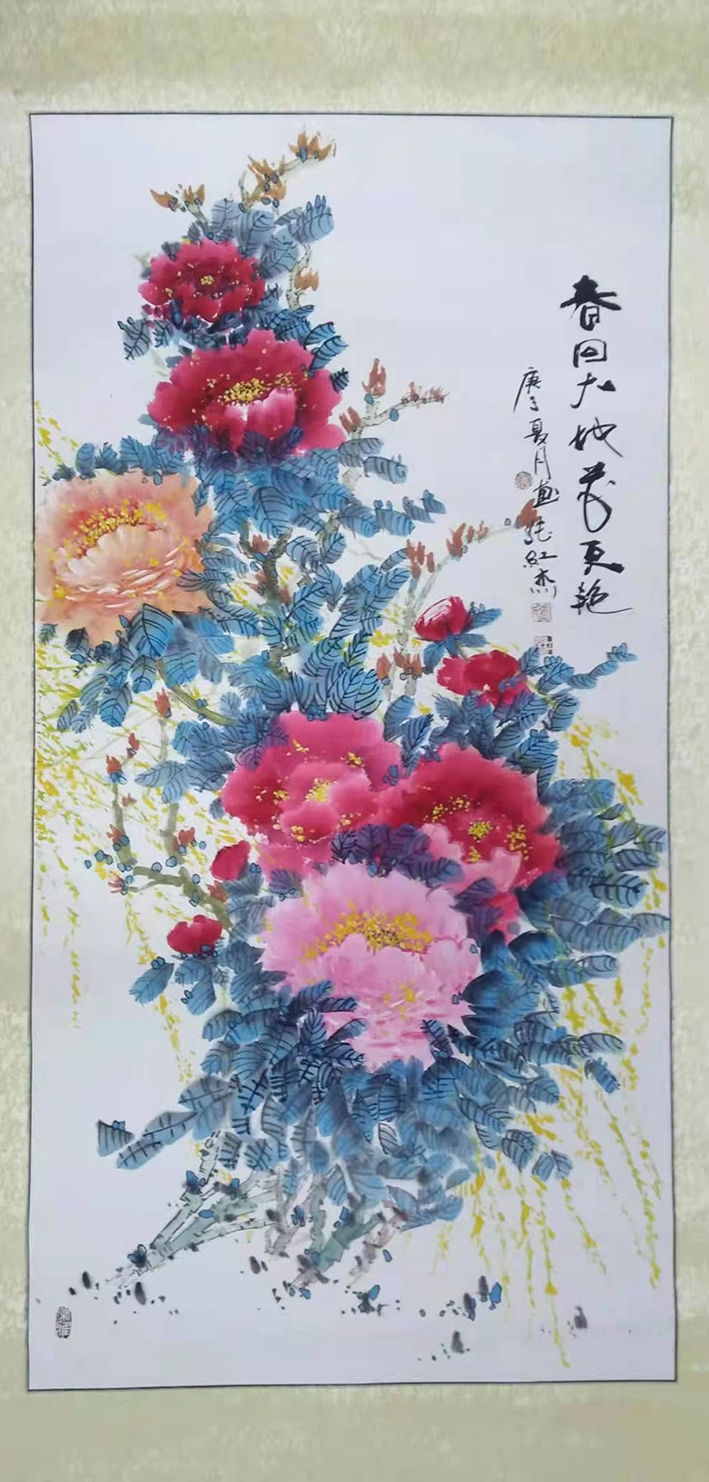 春回大地花更艳
庚子夏月画张红杰